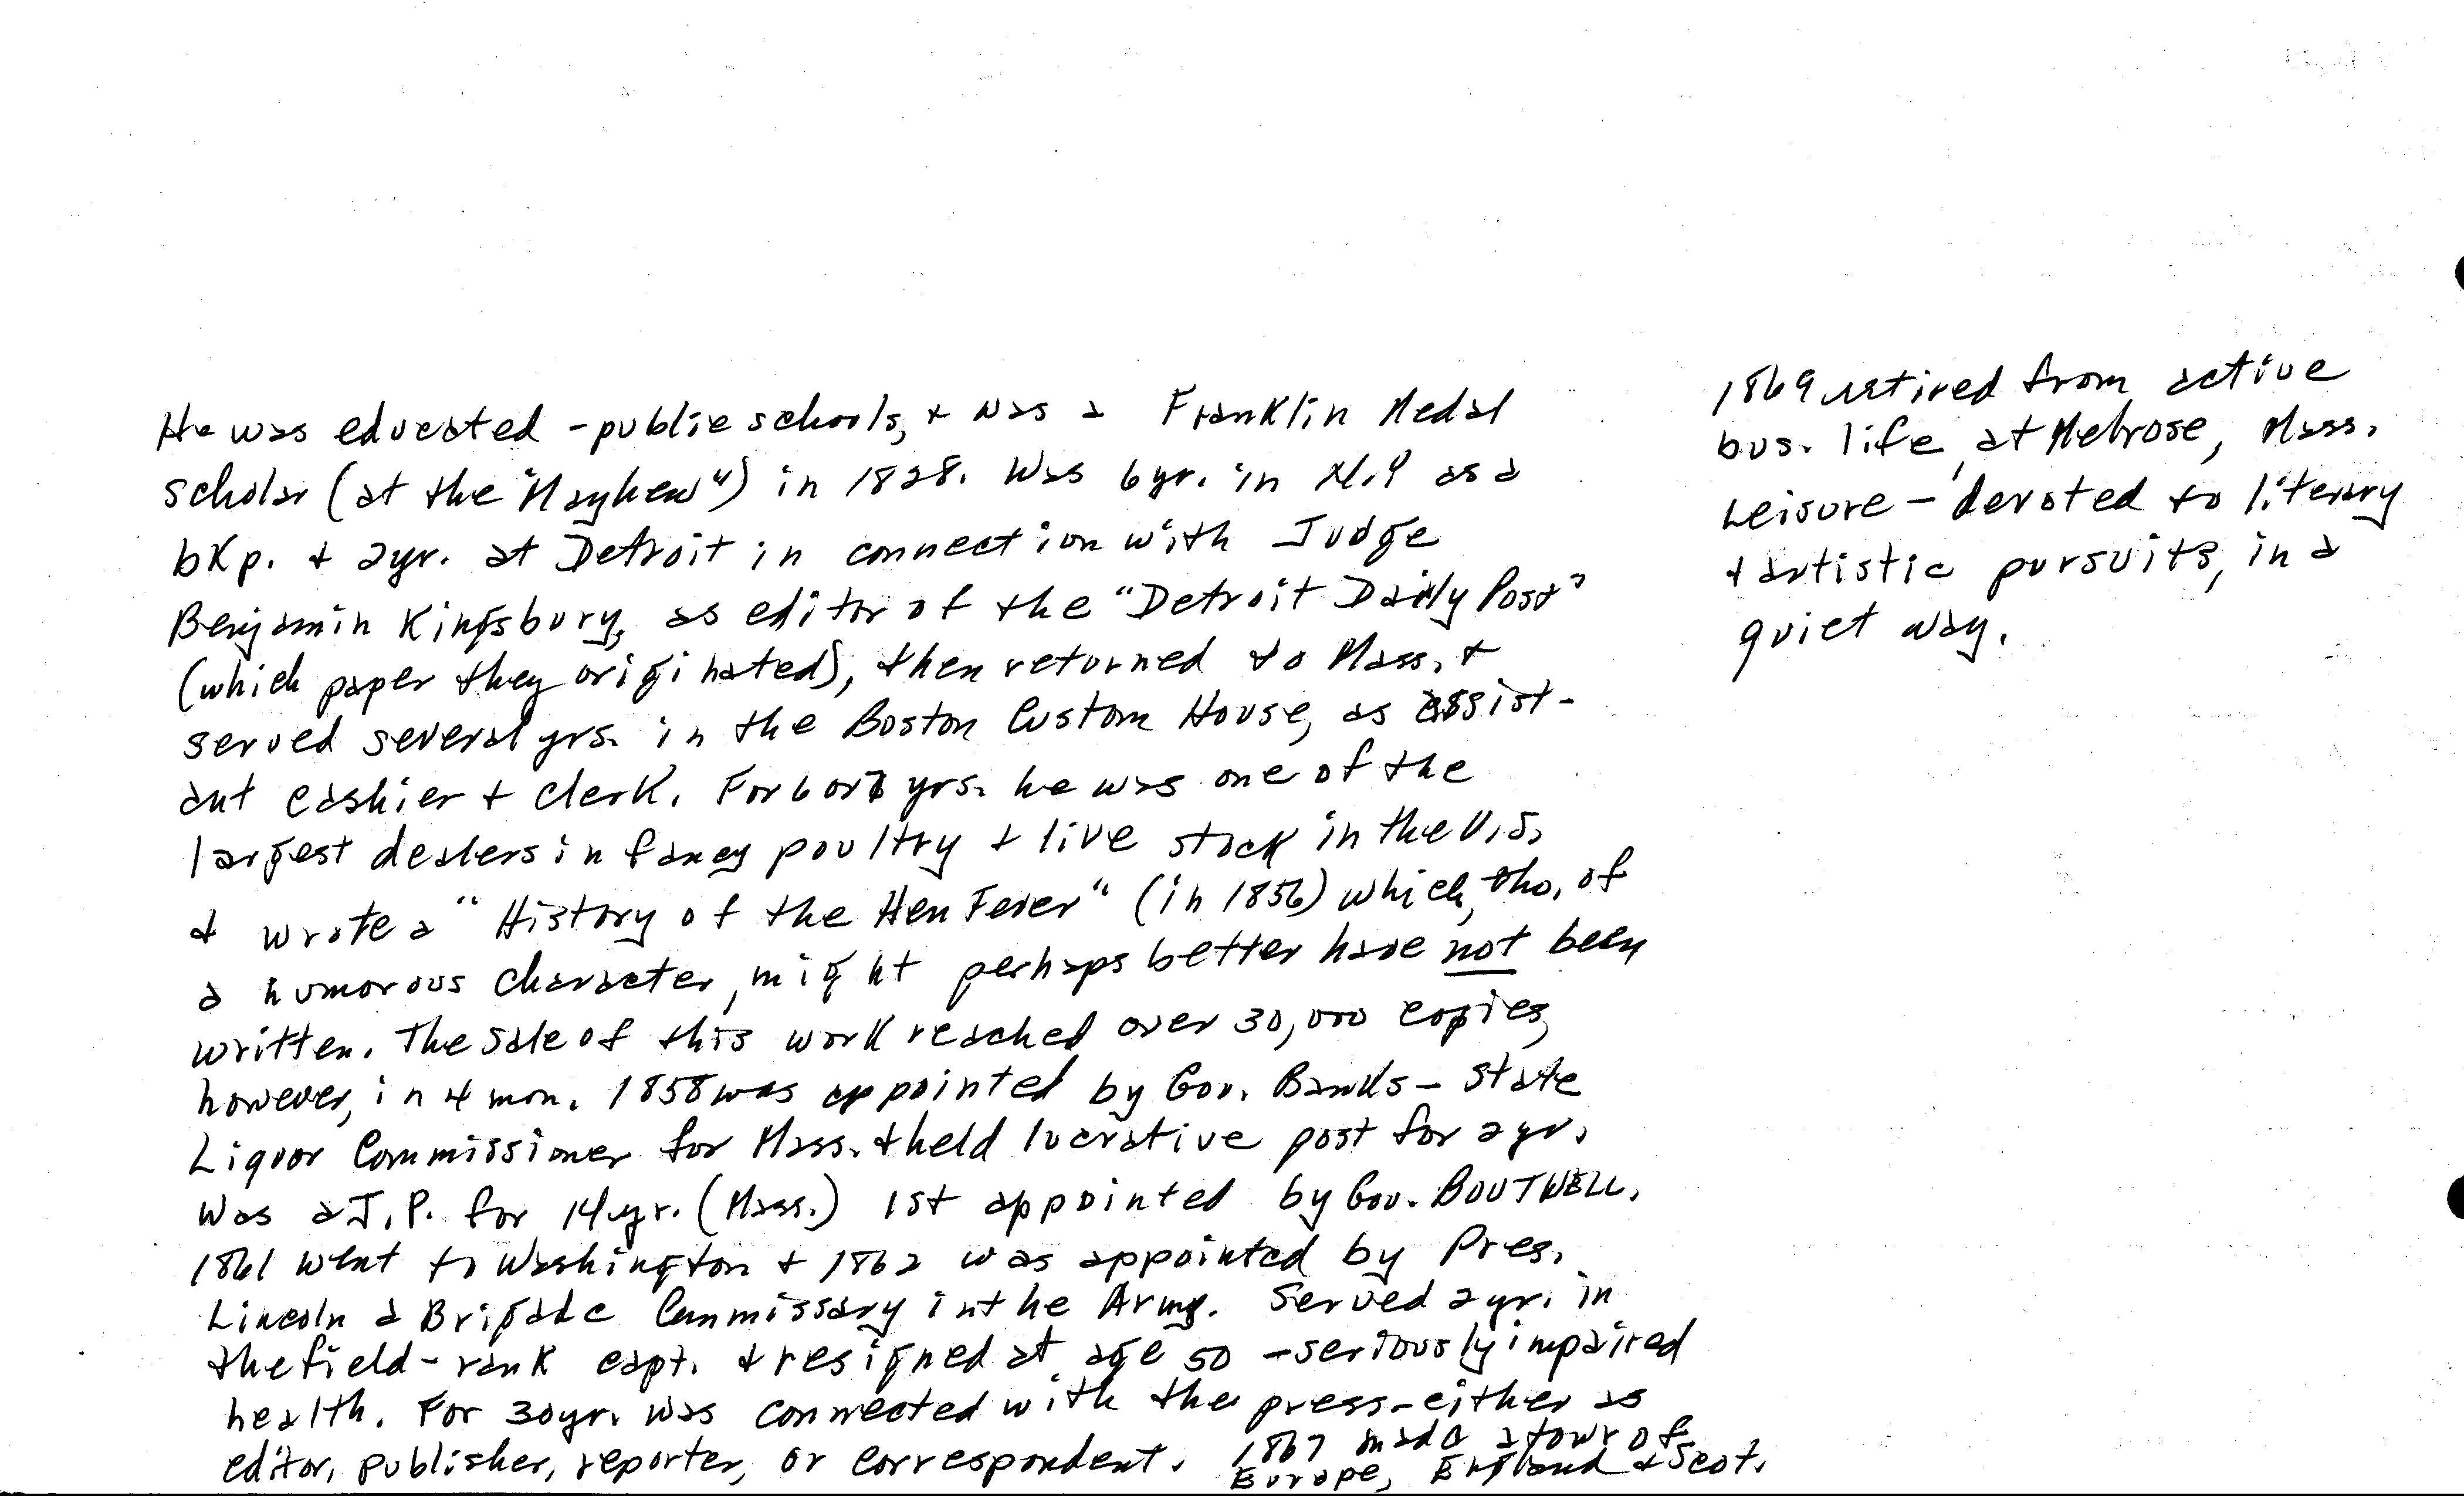 He was educated - public schools, + was a Franklin Medal
scholar (at the "Mayhew") in 1828. Was 6 yr. in N.Y as a
bkp. + 2yr. at Detroit in connection with Judge
Benjamin Kingsbury, as editor of the "Detroit Daily Post"
(which paper they originated), then returned to Mass. +
served several yrs. in the Boston Custom House, as assist-
ant cashier + clerk. For 6 or 7 yrs. he was one of the
largest dealers in fancy poultry + live stock in the U.S.
+ wrote a "History of the Hen Fever" (in 1856) which, tho, of
a humorous character, might perhaps better have not been
written. The sale of this work reached over 30,000 copies,
however, in 4 mon. 1858 was appointed by Gov. Banks - State
Liquor Commissioner for Mass. + held lucrative post for 2 yr.
Was a J.P. for 14 yr. (Mass.) 1st appointed by Gov. BOUTWELL.
1861 went to Washington + 1862 was appointed by Pres.
Lincoln a Brigade Commissary in the Army. Served 2 yr. in
the field - rank capt. + resigned at age 50 - seriously impaired
health. For 30 yr. was connected with the press - either as
editor, publisher, reporter, or correspondent. 1867 made a tour of
Europe, England + Scot.
1869 retired from active
bus. life, at Melrose, Mass.
Leisure - devoted to literary
+ artistic pursuits, in a
quiet way.